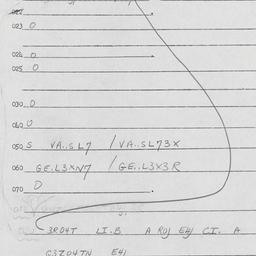 023 0
024 0
025 0
030 0
040 0
050 S VA..SL7 / VA..SL73X
060 GE.L3XN7 / GE..L3X3R
070 0
3R04T LI.B A ROJ E4J CI. A
C3Z04TN E4J